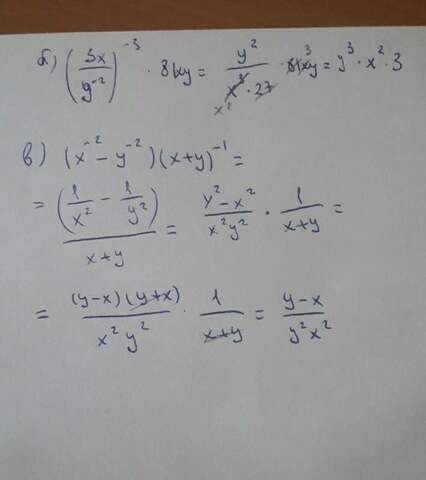 б) (3x/y⁻²)⁻³ · 81xy = y²/(x³ · 27) x² · 81xy 3 = y³ · x² · 3
в) (x⁻² - y⁻²)(x+y)⁻¹ =
= (1/x² - 1/y²)/(x+y) = (y² - x²)/(x²y²) · 1/(x+y) =
= (y-x)(y+x)/(x²y²) · 1/(x+y) = (y-x)/(y²x²)